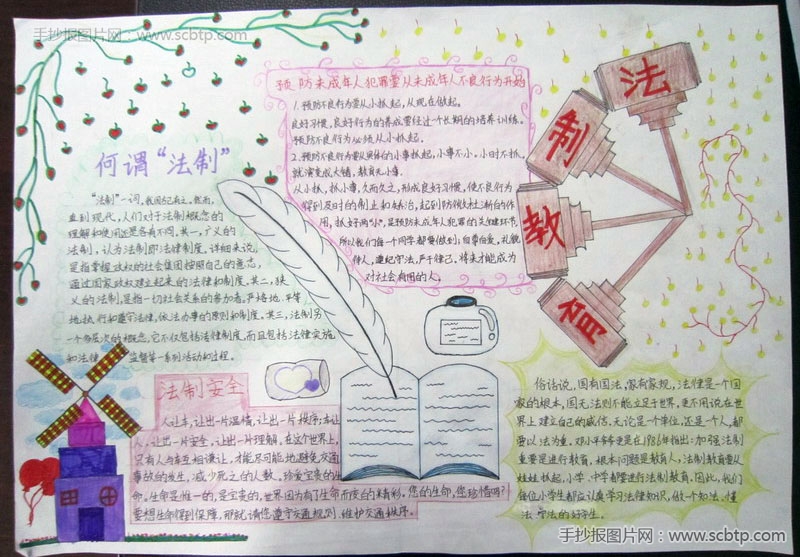 手抄报图片网：www.scbtp.com
何谓“法制”
“法制”一词，我国古已有之。然而，
直到现代，人们对于法制概念的
理解和使用还是各有不同。其一，广义的
法制，认为法制即法律制度。详细来说，
是指掌握政权的社会集团按照自己的意志，
通过国家政权建立起来的法律和制度。其二，狭
义的法制，是指一切社会关系的参加者，严格地、平等
地执行和遵守法律，依法办事的原则和制度。其三，法制另
一个多层次的概念，它不仅包括法律制度，而且包括法律实施
和法律 监督等一系列活动和过程。
预防未成年人犯罪要从未成年人不良行为开始
1. 预防不良行为要从小抓起，从现在做起。
良好习惯，良好行为的养成需经过个长期的培养训练。
预防不良行为必须从小抓起。
2. 预防不良行为要从具体的小事抓起，小事不小。小时不抓，
就演变成大错，教育无小事。
从小抓，抓小事，久而久之，形成良好习惯，使不良行为
得到及时的制止和矫治，起到防微杜渐的作
用，抓好两“小”，是预防未成年人犯罪的关键环节。
所以我们每一个同学都要做到：自尊自爱，礼貌
待人，遵纪守法，严于律己，将来才能成为
对社会有用的人。
法
制
教
育
法制安全
人让车，让出一片温情，让出一片秩序；车让
人，让出一片安全，让出一片理解，在这个世界上，
只有人与车互相谦让，才能尽可能地避免交通
事故的发生，减少死亡的人数。珍爱宝贵的生
命。生命是惟一的，是宝贵的，世界因为有了生命而变的精彩。您的生命，您珍惜吗？
要想生命得到保障，那就请您遵守交通规则，维护交通秩序。
俗话说，国有国法，家有家规，法律是一个国
家的根本，国无法则不能立足于世界，更不用说在世
界上建立自己的威信。无论是一个单位，还是一个人，都
要以法为重。邓小平爷爷更是在1986年指出：加强法制
重要是进行教育，根本问题是教育人，法制教育要从
娃娃抓起，小学、中学都要进行法制教育。因此，我们
每位小学生都应认真学习法律知识，做一个知法、懂
法、守法的好学生。
手抄报图片网：www.scbtp.com